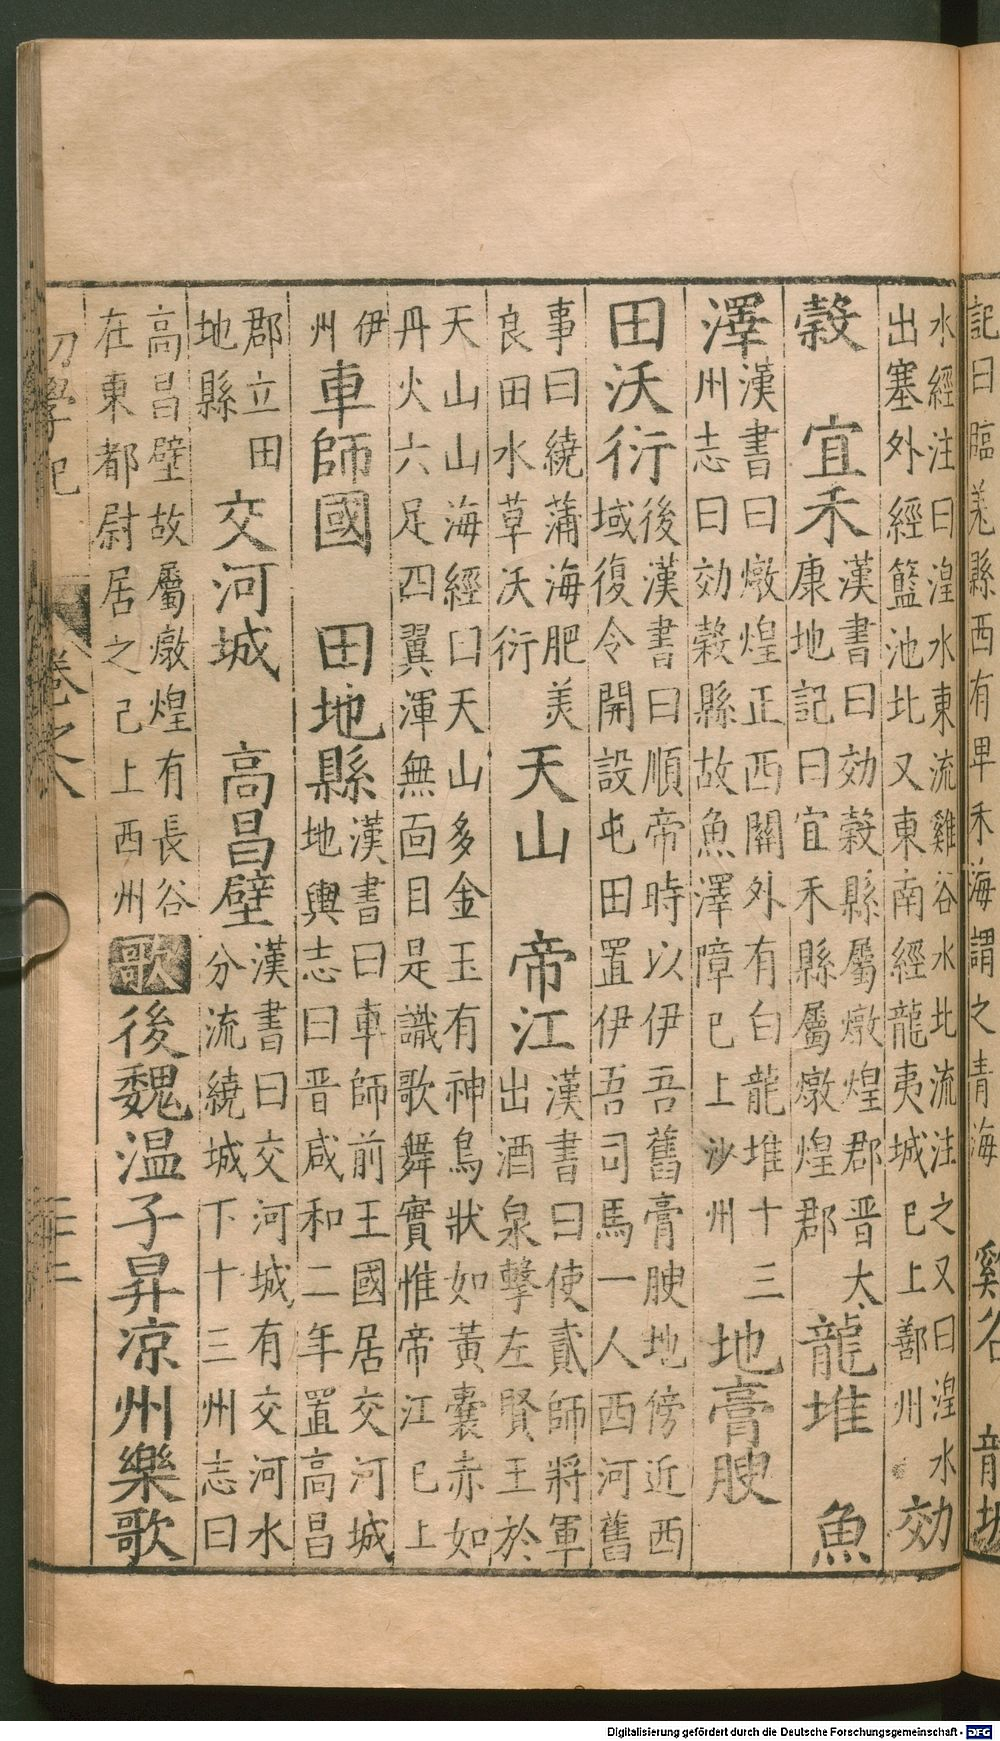 記曰臨羗縣西有卑禾海謂之青海
水經注曰湟水東流雞谷水北流注之又曰湟水
出塞外經籃池北又東南經龍夷城已上鄯州
効
穀
宜禾
漢書曰効穀縣屬燉煌郡晋太
康地記曰宜禾縣屬燉煌郡
龍堆
魚
澤
漢書曰燉煌正西關外有白龍堆十三
州志曰効穀縣故魚澤障已上沙州
地膏腴
田沃衍
後漢書曰順帝時以伊吾舊膏腴地傍近西
域復令開設屯田置伊吾司馬一人西河舊
事曰繞蒲海肥美
良田水草沃衍
天山
帝江
漢書曰使貳師將軍
出酒泉擊左賢王於
天山山海經口天山多金玉有神鳥狀如黃囊赤如
丹火六足四翼渾無面目是識歌舞實惟帝江已上
伊
州
車師國
田地縣
漢書曰車師前王國居交河城
地輿志曰晋咸和二年置高昌
郡立田
地縣
交河城
高昌壁
漢書曰交河城有交河水
分流繞城下十三州志曰
高昌壁故屬燉煌有長谷
在東都尉居之已上西州
歌
後魏温子昇凉州樂歌
初學記
卷之八
二十二
Digitalisierung gefördert durch die Deutsche Forschungsgemeinschaft - DFG